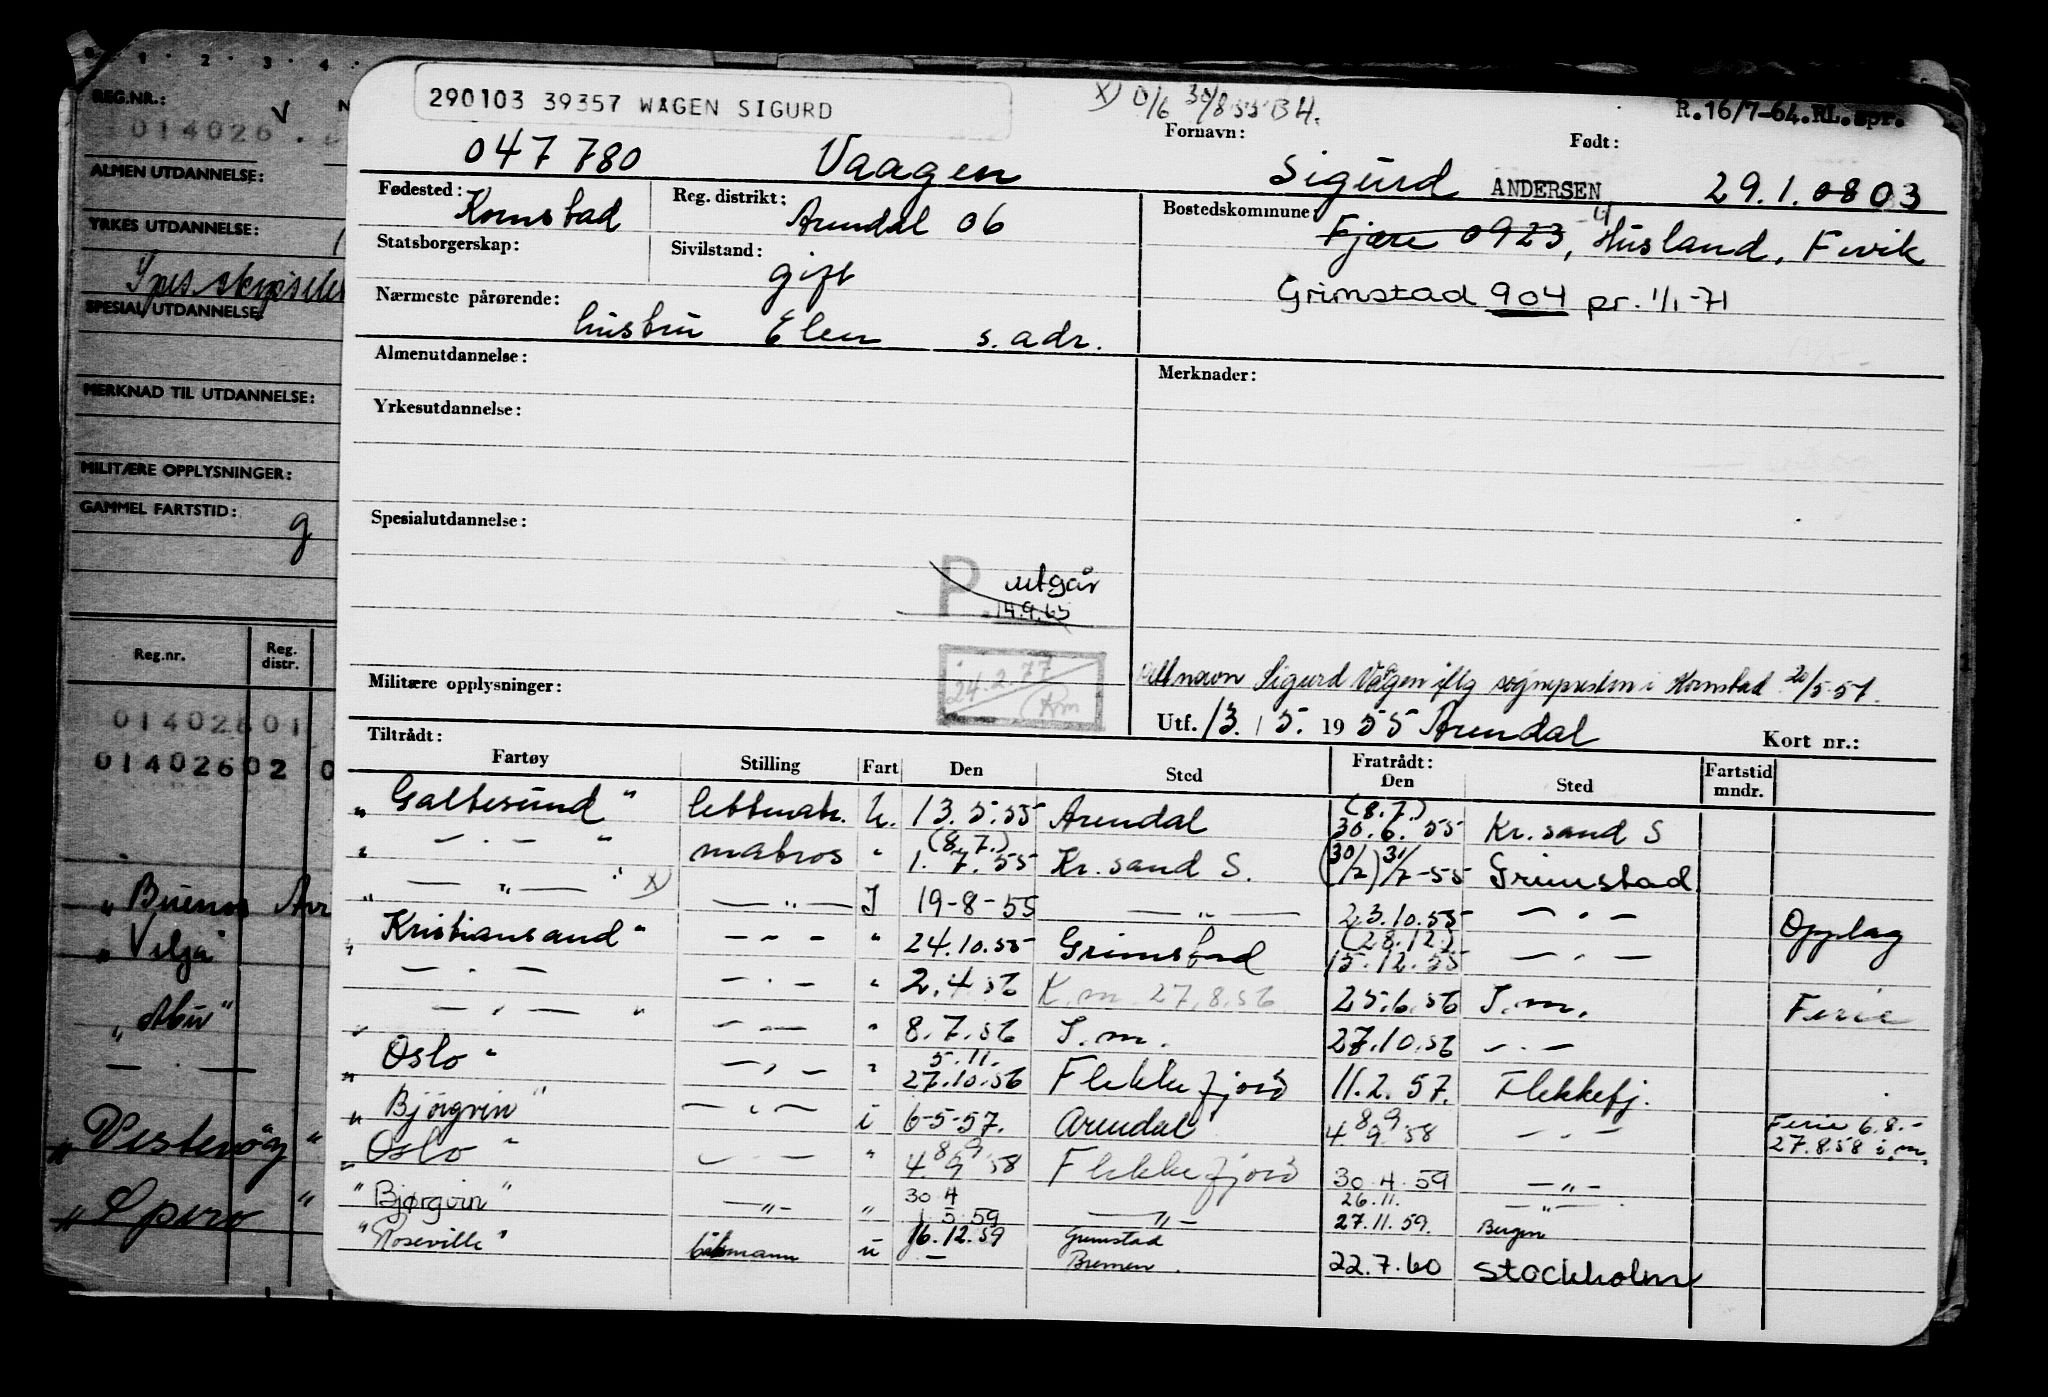 290103 39357 WÅGEN SIGURD
X) 0/6 30/8 55 BH.
R.16/7-64.RL.spr.
Fornavn:
Født:
047 780 Vaagen Sigurd ANDERSEN 29.1.0803
Fødested: Kornstad
Reg. distrikt: Arendal 06
Bostedskommune: Fjære 0923, Husland, Fevik
Statsborgerskap:
Sivilstand: gift
Grimstad 904 pr. 1/1-71
Nærmeste pårørende: hustru Elen s. adr.
Almenutdannelse:
Merknader:
Yrkesutdannelse:
Spesialutdannelse:
P. utgår
14.9.65
24.2.77
Militære opplysninger:
navn Sigurd Vågen iflg sognepresten i Kornstad 20/5-57.
Utf. 13./5. 1955 Arendal
Kort nr.:
Tiltrådt:
Fratrådt:
Fartøy Stilling Fart Den Sted Den Sted Fartstid mndr.
„Galtesund" lettmatr. U. 13.5.55 Arendal (8.7.) 30.6.55 Kr.sand S
„ — . — " matros " (8.7.) 1.7.55 Kr.sand S. (30/7) 31/7-55 Grimstad
„ — „ — " X) — „ — I 19-8-55 — „ — 23.10.55 — . — Opplag
„Kristiansand" — - — " 24.10.55 Grimstad (28.12.) 15.12.55 — . —
„ — . — — . — " 2.4.56 K.m. 27.8.56 25.6.56 I.m. Ferie
„ — . — " — . — " 8.7.56 I.m. 27.10.56 — . —
„Oslo" — . — " 5.11. 27.10.56 Flekkefjord 11.2.57. Flekkefj.
„Bjørgvin" — . — i 6-5-57. Arendal 4 8/9 9 58 — . — Ferie 6.8.- 27.8.58 i.m.
„Oslo" — . — " 4 8/9 9 58 Flekkefjord 30.4.59 — „ —
„Bjørgvin" — „ — " 30 4 1.5.59 — „ — 26.11. 27.11.59. — „ — Bergen
„Roseville" båtsmann u 16.12.59 Grimstad
— Bremen 22.7.60 Stockholm
REG.NR.:
014026
ALMEN UTDANNELSE:
YRKES UTDANNELSE:
SPESIAL UTDANNELSE:
MERKNAD TIL UTDANNELSE:
MILITÆRE OPPLYSNINGER:
GAMMEL FARTSTID:
g
Reg.nr. Reg. distr.
01402601
01402602 0
„Buenos Air
„Vilja"
„Abu"
— . —
„Vestenøy"
„Spero"